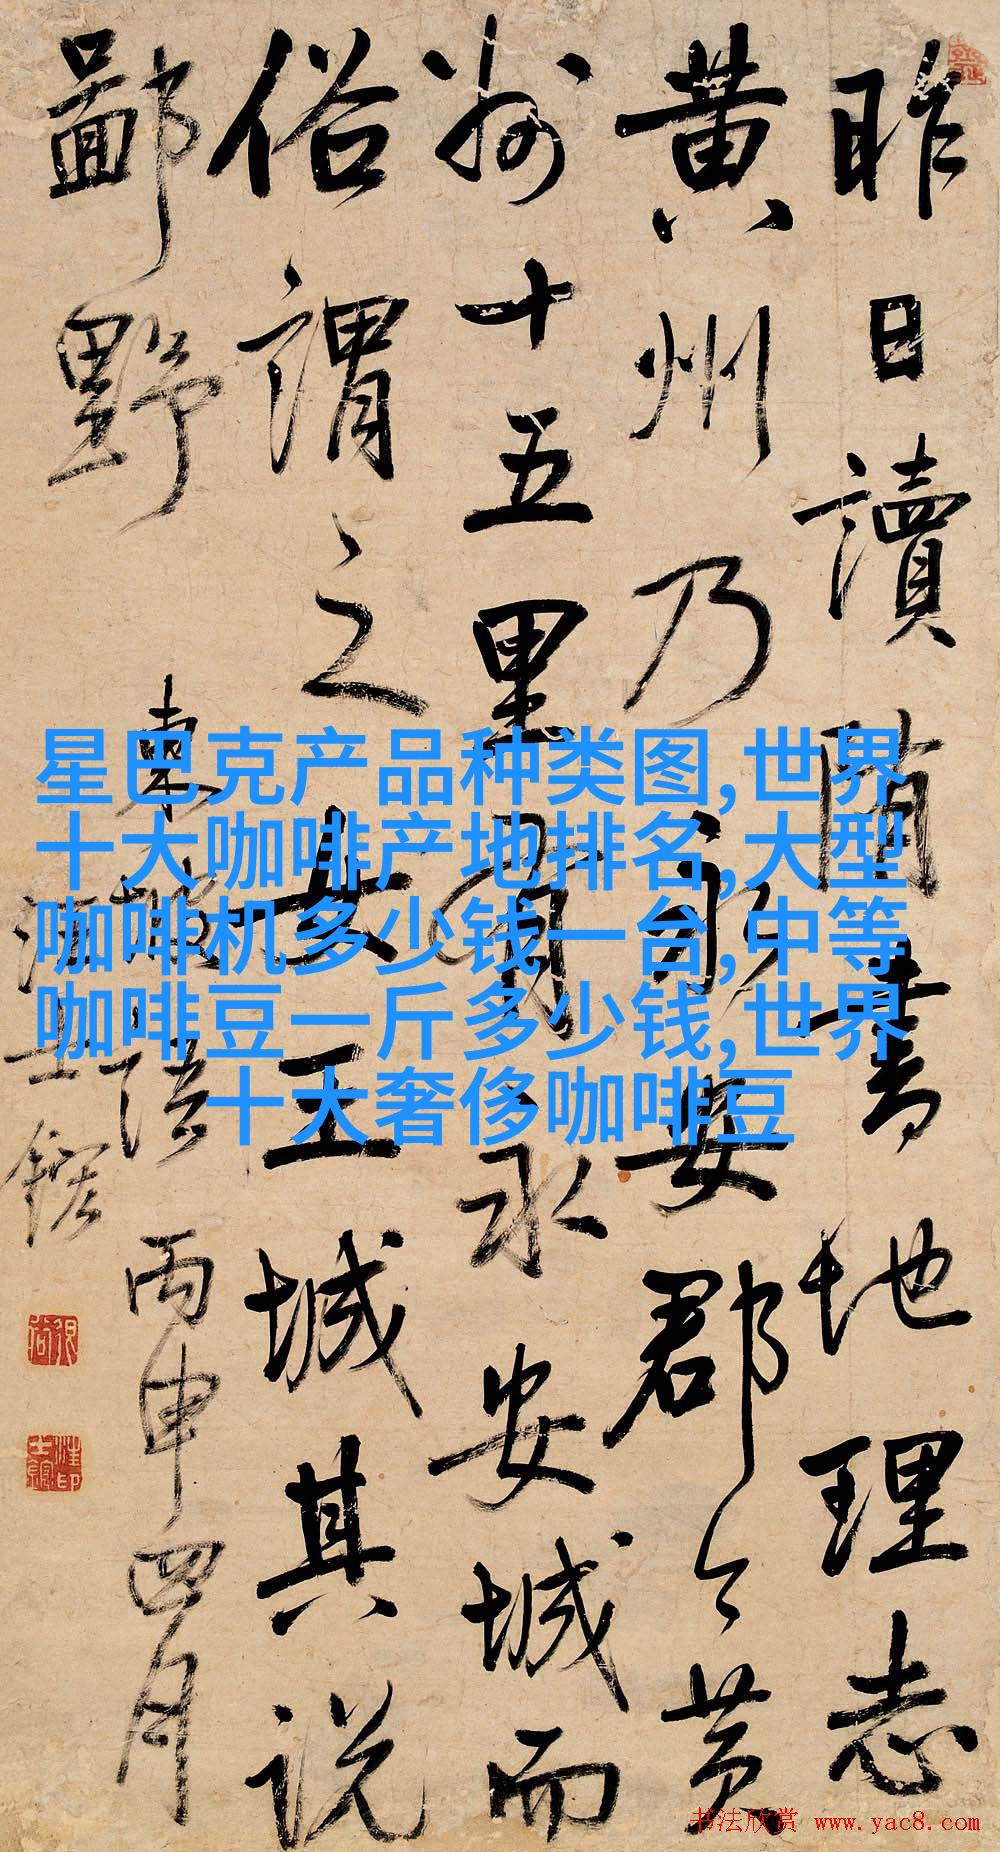 昨日讀隋書地理志
黃州乃永安郡今黃
州十五里有永安城而
俗謂之女王城其說
鄙野
東坡語 丙申四月
汪士鋐
星巴克产品种类图,世界
十大咖啡产地排名,大型
咖啡机多少钱一台,中等
咖啡豆一斤多少钱,世界
十大奢侈咖啡豆
书法欣赏 www.yac8.com